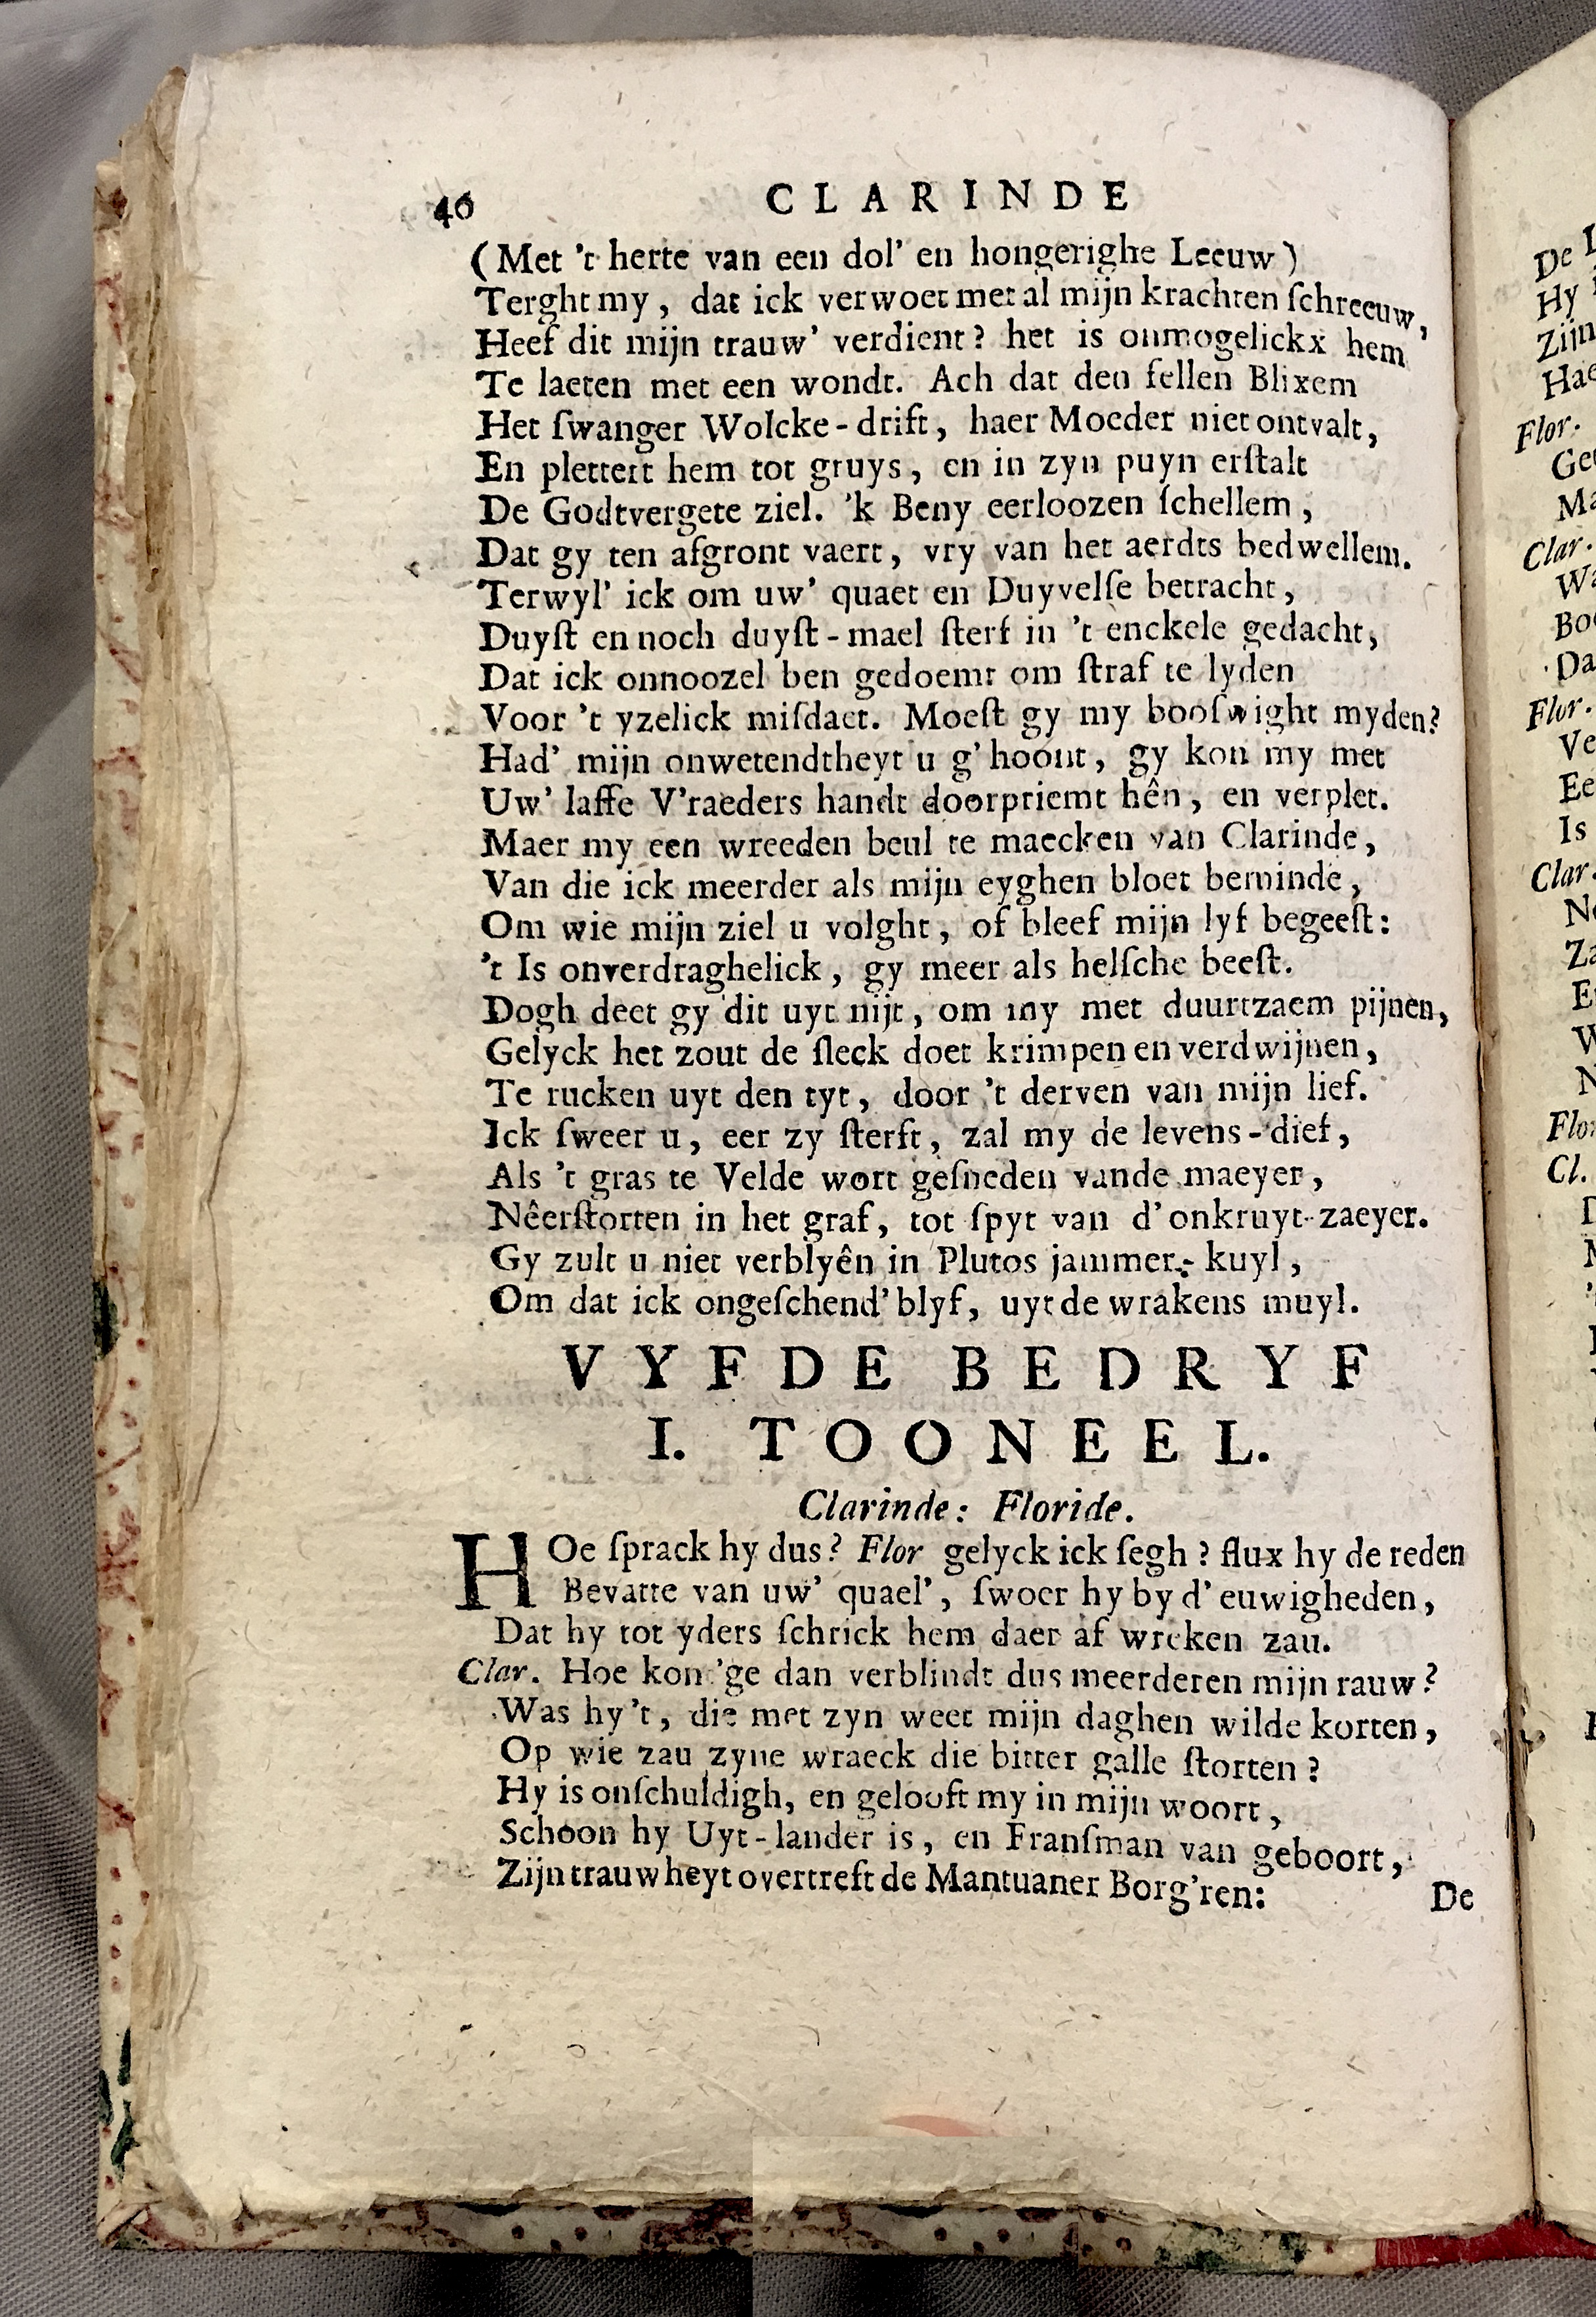 40 CLARINDE
(Met 't herte van een dol' en hongerighe Leeuw)
Terght my, dat ick verwoet met al mijn krachten ſchreeuw,
Heef dit mijn trauw' verdient? het is onmogelickx hem
Te laeten met een wondt. Ach dat den fellen Blixem
Het ſwanger Wolcke-drift, haer Moeder niet ontvalt,
En plettert hem tot gruys, en in zyn puyn erſtalt
De Godtvergete ziel. 'k Beny eerloozen ſchellem,
Dat gy ten afgront vaert, vry van het aerdts bedwellem.
Terwyl' ick om uw' quaet en Duyvelſe betracht,
Duyſt en noch duyſt-mael ſterf in 't enckele gedacht,
Dat ick onnoozel ben gedoemt om ſtraf te lyden
Voor 't yzelick miſdaet. Moeſt gy my boofwight myden?
Had' mijn onwetendtheyt u g'hoont, gy kon my met
Uw' laffe V'raeders handt doorpriemt hên, en verplet.
Maer my een wreeden beul te maecken van Clarinde,
Van die ick meerder als mijn eyghen bloet beminde,
Om wie mijn ziel u volght, of bleef mijn lyf begeeſt:
't Is onverdraghelick, gy meer als helſche beeſt.
Dogh deet gy dit uyt nijt, om my met duurtzaem pijnen,
Gelyck het zout de ſleck doet krimpen en verdwijnen,
Te rucken uyt den tyt, door 't derven van mijn lief.
Ick ſweer u, eer zy ſterft, zal my de levens-dief,
Als 't gras te Velde wort geſneden vande maeyer,
Nêerſtorten in het graf, tot ſpyt van d'onkruyt-zaeyer.
Gy zult u niet verblyên in Plutos jammer-kuyl,
Om dat ick ongeſchend' blyf, uyt de wrakens muyl.
VYFDE BEDRYF
I. TOONEEL.
Clarinde: Floride.
HOe ſprack hy dus? Flor gelyck ick ſegh? flux hy de reden
Bevatte van uw' quael', ſwoer hy by d'euwigheden,
Dat hy tot yders ſchrick hem daer af wreken zau.
Clar. Hoe kon 'ge dan verblindt dus meerderen mijn rauw?
Was hy 't, die met zyn weet mijn daghen wilde korten,
Op wie zau zyne wraeck die bitter galle ſtorten?
Hy is onſchuldigh, en gelooft my in mijn woort,
Schoon hy Uyt-lander is, en Franſman van geboort,
Zijn trauwheyt overtreft de Mantuaner Borg'ren:
De
De
Hy
Zijn
Hae
Flor.
Ge
Ma
Clar.
Wa
Bo
Da
Flor.
Ve
Ee
Is
Clar.
Ne
Za
E
W
N
Flo
Cl.